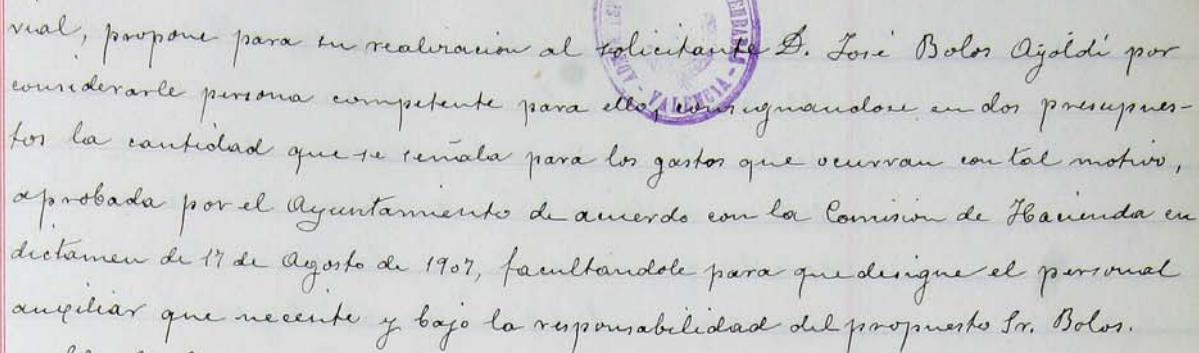 vial, propone para su realización al solicitante D. José Bolos Ayoldi por
considerarle persona competente para ello, consignandose en dos presupues-
tos la cantidad que se señala para los gastos que ocurran con tal motivo,
aprobada por el Ayuntamiento de acuerdo con la Comision de Hacienda en
dictamen de 17 de Agosto de 1907, facultandole para que designe el personal
auxiliar que necesite y bajo la responsabilidad del propuesto Sr. Bolos.
VALENCIA